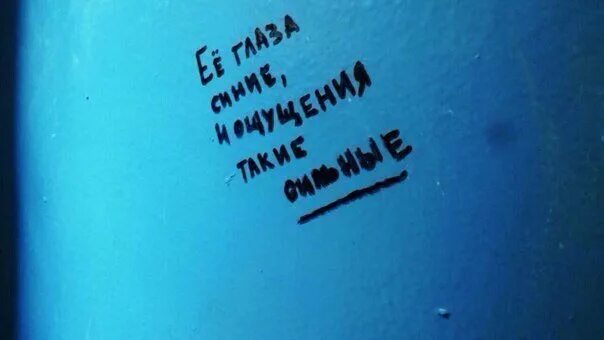 Её ГЛАЗА
СИНИЕ,
И ОЩУЩЕНИЯ
ТАКИЕ
СИЛЬНЫЕ